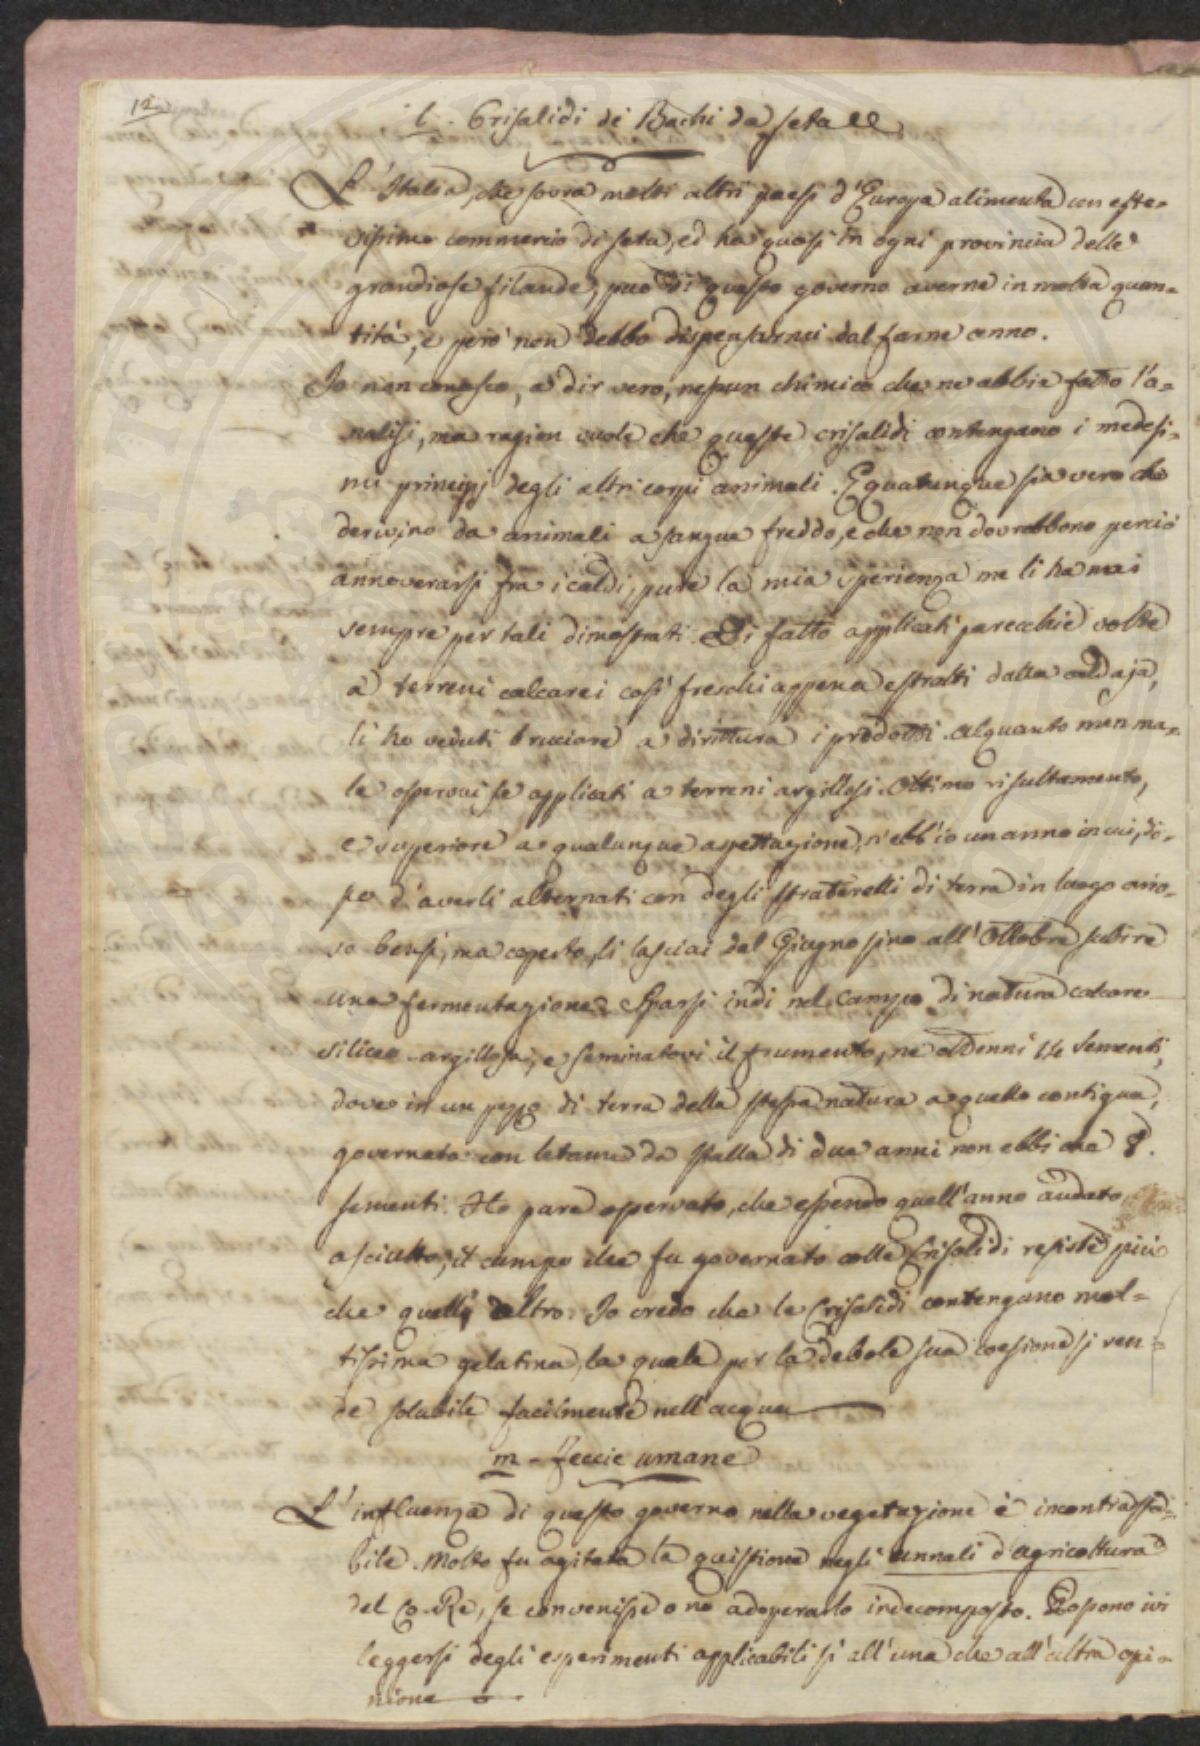 12
l. Crisalidi di Bachi da seta
L'Italia, che sovra molti altri paesi d'Europa alimenta un este-
sissimo commercio di seta, ed ha quasi in ogni provincia delle
grandiose filande, può di questo governo averne in molta quan-
tità, e però non debbo dispensarmi dal farne cenno.
Io non conosco, a dir vero, nessun chimico che ne abbia fatto l'a-
nalisi, ma ragion vuole che queste crisalidi contengano i medesi-
mi principj degli altri corpi animali. E quatunque sia vero che
derivino da animali a sangue freddo, e che non dovrebbono perciò
annoverarsi fra i caldi, pure la mia sperienza me li ha mai
sempre per tali dimostrati. Di fatto applicati parecchie volte
a terreni calcarei così freschi appena estratti dalla caldaja,
li ho veduti bruciare a dirittura i prodotti. Alquanto men ma-
le osservai se applicati a terreni argillosi. Ottimo risultamento,
e superiore a qualunque aspettazione, n'ebb'io un anno in cui, do-
po d'averli alternati con degli straterelli di terra in luogo ario-
so bensì, ma coperto, li lasciai dal Giugno sino all'Ottobre subire
una fermentazione. Sparsi indi nel campo di natura calcare
siliceo-argillosa, e seminatovi il frumento, ne ottenni 14 sementi,
dove in un pezzo di terra della stessa natura a quello contigua,
governato con letame da stalla di due anni non ebbi che 8.
sementi. Ho pure osservato, che essendo quell'anno andato
asciutto, il campo che fu governato colle Crisalidi resistè più
che quell' altro. Io credo che le Crisalidi contengano mol-
tissima gelatina, la quale per la debole sua coesione si ren-
de solubile facilmente nell'acqua
m - Feccie umane
L'influenza di questo governo nella vegetazione è incontrasta-
bile. Molto fu agitata la quistione negli annali d'agricoltura
del Co. Re, se convenisse o no adoperarlo indecomposto. Possono ivi
leggersi degli esperimenti applicabili sì all'una che all'altra opi-
nione